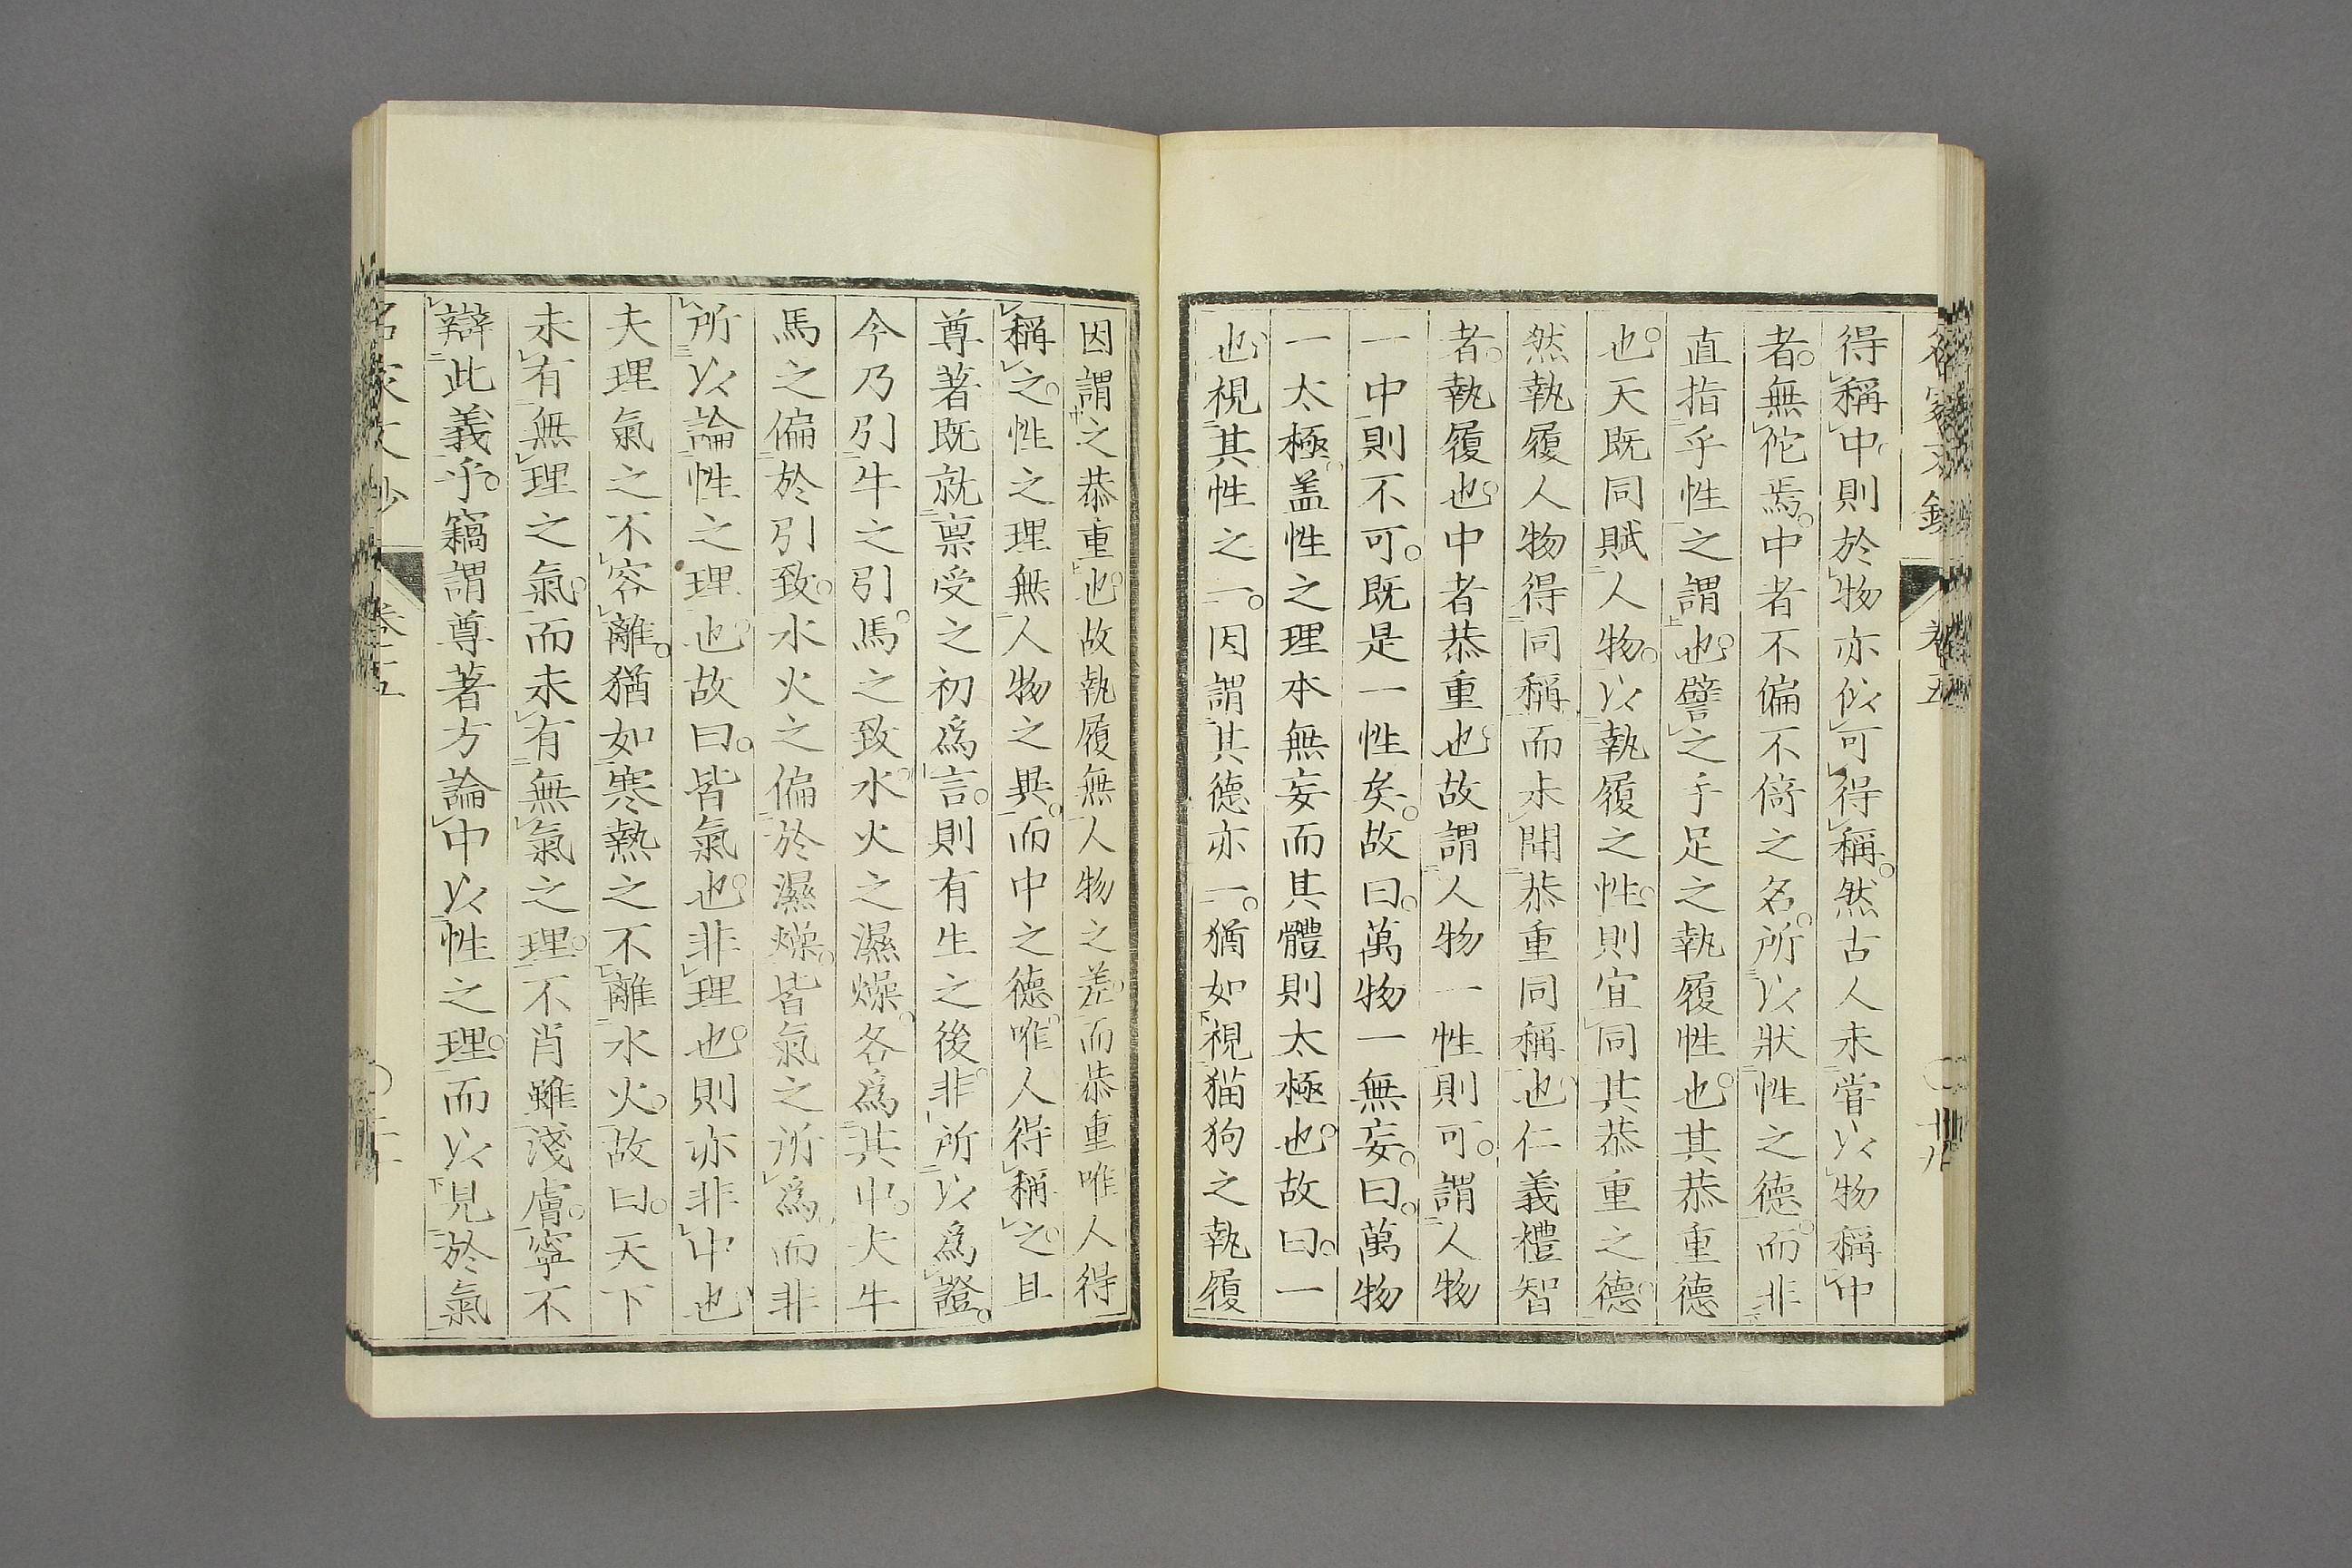 得稱中則於物亦似可得稱然古人未嘗以物稱中
者無佗焉中者不偏不倚之名所以狀性之德而非
直指乎性之謂也譬之手足之執履性也其恭重德
也天既同賦人物以執履之性則宜同其恭重之德
然執履人物得同稱而未聞恭重同稱也仁義禮智
者執履也中者恭重也故謂人物一性則可謂人物
一中則不可既是一性矣故曰萬物一無妄曰萬物
一太極盖性之理本無妄而其體則太極也故曰一
也視其性之一因謂其德亦一猶如視猫狗之執履
因謂之恭重也故執履無人物之差而恭重唯人得
稱之性之理無人物之異而中之德唯人得稱之且
尊著既就禀受之初爲言則有生之後非所以爲證
今乃引牛之引馬之致水火之濕燥各爲其中夫牛
馬之偏於引致水火之偏於濕燥皆氣之所爲而非
所以論性之理也故曰皆氣也非理也則亦非中也
夫理氣之不容離猶如寒熱之不離水火故曰天下
未有無理之氣而未有無氣之理不肖雖淺膚寧不
辯此義乎竊謂尊著方論中以性之理而以見於氣